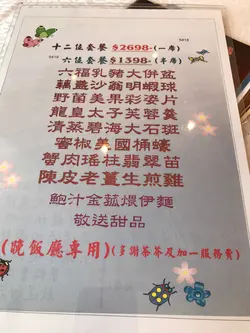 十二位套餐 $2698-(一席)
5418
六位套餐 $1398-(半席)
5419
六福乳豬大併盆
藕盞沙翁明蝦球
野菌美果彩姿片
龍皇太子芙蓉羹
清蒸碧海大石斑
蜜椒美國桶蠔
蟹肉瑤柱翡翠苗
陳皮老薑生煎雞
鮑汁金菰煨伊麵
敬送甜品
(晚飯廳專用)(多謝茶芥及加一服務費)